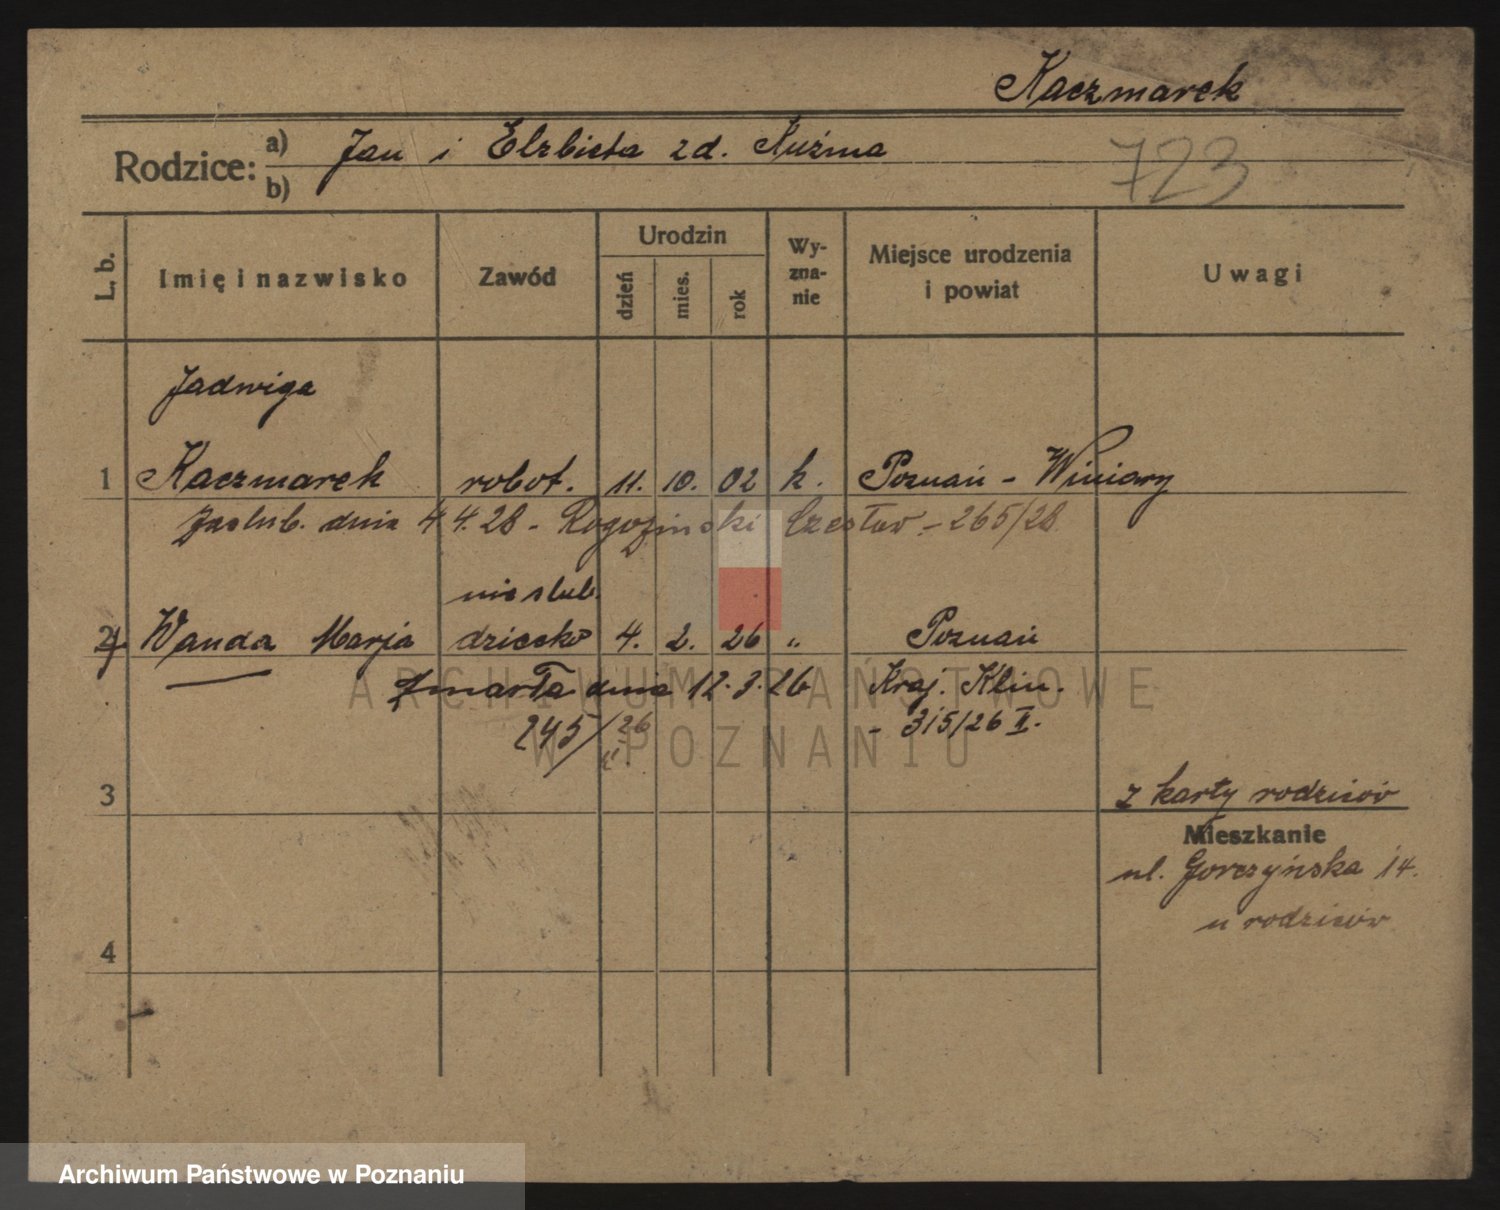 Kaczmarek
Rodzice: a) Jan i Elzbieta zd. Kuźma
b)
723
L. b.
Imię i nazwisko
Zawód
Urodzin
dzień
mies.
rok
Wy-
zna-
nie
Miejsce urodzenia
i powiat
Uwagi
Jadwiga
1 Kaczmarek robot. 11. 10. 02 k. Poznań - Winiary
Zaslub. dnia 4 4. 28 - Rogoziński Czesław - 265/28
nieslub.
2 Wanda Marja dziecko 4. 2. 26 " Poznań
zmarła dnia 12. 3. 26 Kraj. Klin.
245/26 - 315/26 II.
3
z karty rodziców
Mieszkanie
ul. Gorczyńska 14.
u rodziców
4
ARCHIWUM PAŃSTWOWE
W POZNANIU
Archiwum Państwowe w Poznaniu